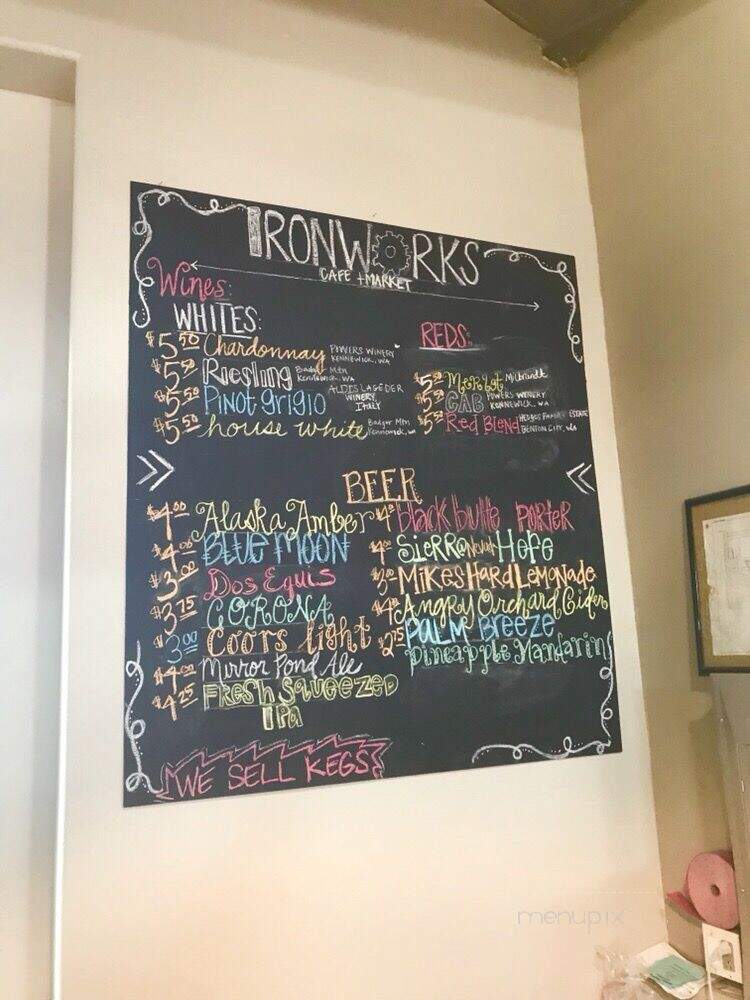 IRONWORKS
CAFE + MARKET
Wines:
WHITES:
$5.50 Chardonnay POWERS WINERY KENNEWICK, WA
$5.50 Riesling Badger Mtn Kennewick, WA
$5.50 Pinot grigio ALOIS LAGEDER WINERY, ITALY
$5.50 house white Badger Mtn Kennewick, WA
REDS:
$5.50 Merlot Milbrandt
$5.50 CAB POWERS WINERY KENNEWICK, WA
$5.50 Red Blend Hedges Family ESTATE BENTON CITY, WA
BEER
$4.00 Alaska Amber
$4.00 BLUE MOON
$3.00 Dos Equis
$3.75 CORONA
$3.00 Coors light
$4.00 Mirror Pond Ale
$4.25 FResh Squeezed
IPA
black butte PORTER
SieRRa Nevada Hefe
MikesHardLemonade
Angry Orchard Cider
$2.75 PALM Breeze
pineapple Mandarin
WE SELL KEGS
menupix